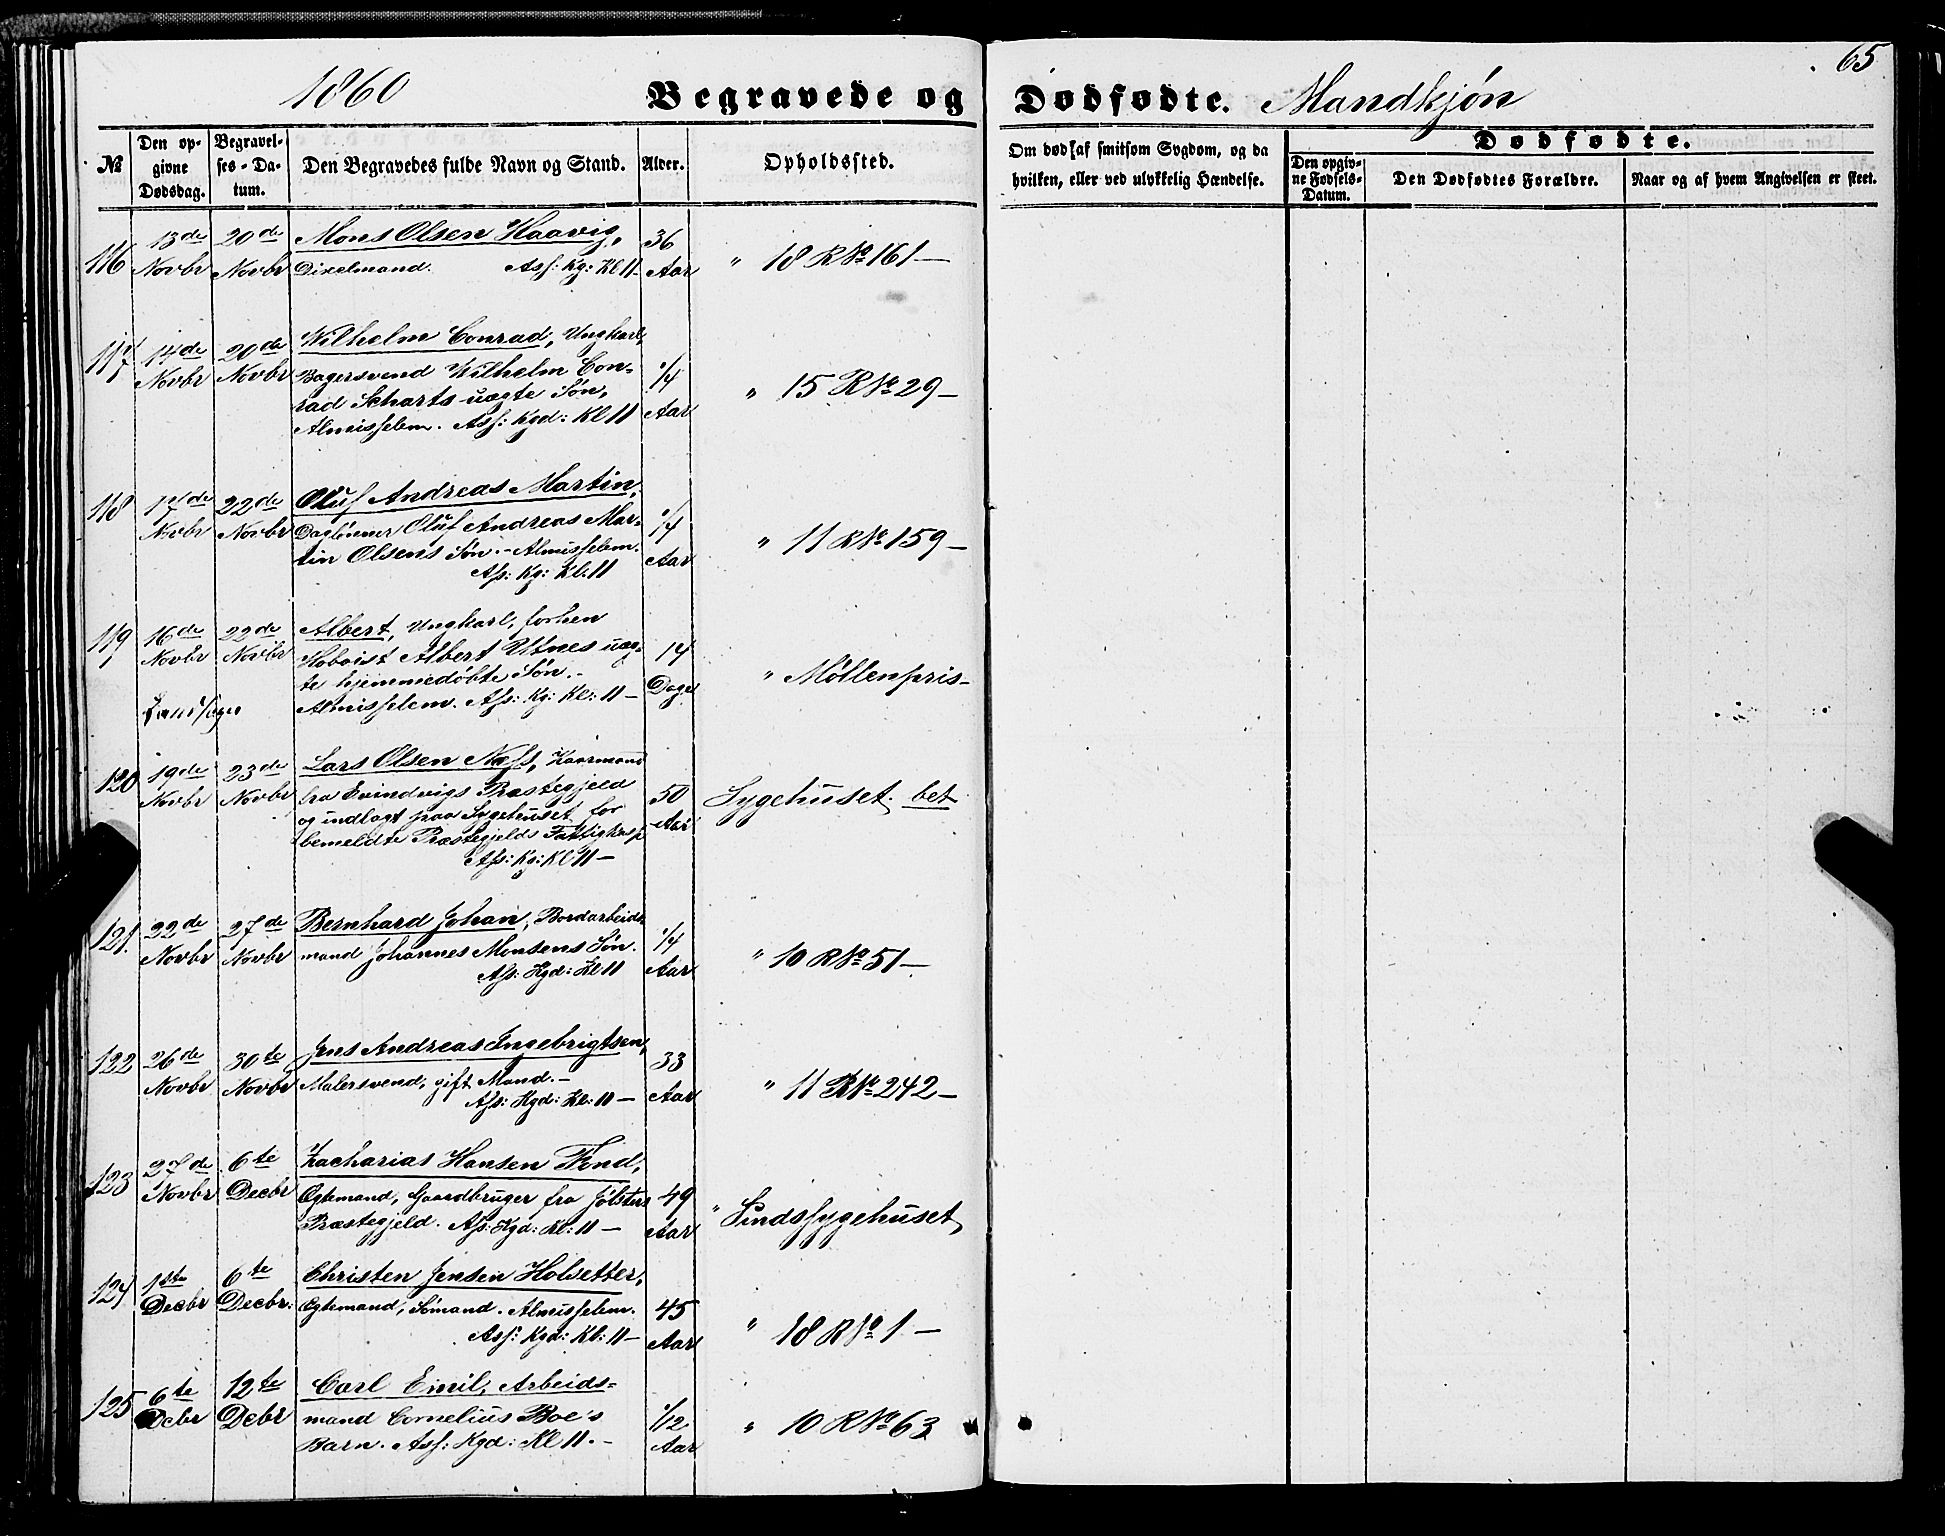 65
1860 Begravede og Dødfødte. Mandkjøn
№ | Den opgivne Dødsdag. | Begravelses-Datum. | Den Begravedes fulde Navn og Stand. | Alder. | Opholdssted. | Om død af smitsom Sygdom, og da hvilken, eller ved ulykkelig Hændelse. | Dødfødte. | Den opgivne Fødsels-Datum. | Den Dødfødtes Forældre. | Naar og af hvem Angivelsen er skeet.
116 13de 20de Mons Olsen Haavig, 36
Novbr Novbr Dixelmand. Ass: Kg: Kl 11 Aar " 18 R No 161 —
117 14de 20de Wilhelm Conrad, Ungkarl,
Novbr Novbr Bagersvend Wilhelm Con- 1/4
rad Scharts uægte Søn, " 15 R No 29 —
Almisselem. Ass: Kgd: Kl 11 Aar
118 17de 22de Oluf Andreas Martin,
Novbr Novbr Daglønner Oluf Andreas Mar- 1/4
tin Olsens Søn. - Almisselem. Aar " 11 R No 159 —
Ass: Kg: Kl: 11
119 16de 22de Albert, Ungkarl, forhen
Novbr Novbr Hoboist Albert Utnes uæg- 14
te hjemmedøbte Søn. - Dage " Møllenpris —
Almisselem. Ass: Kg: Kl: 11 —
120 19de 23de Lars Olsen Næss, Kaarmand
Novbr Novbr fra Evindvigs Præstegjeld 50 Sygehuset. bet
og indlagt paa Sygehuset for Aar
bemeldte Præstegjelds Fattigkasse
Ass: Kg: Kl 11 —
121. 22de 27de Bernhard Johan, Bordarbeids-
Novbr Novbr mand Johannes Monsens Søn. 1/4
Ass: Kgd: Kl 11 Aar " 10 R No 51 —
122 26de 30te Jens Andreas Ingebrigtsen, 33
Novbr Novbr Malersvend, gift Mand. —
Ass: Kgd: Kl: 11 — Aar " 11 R No 242 —
123 27de 6te Zacharias Hansen Fond,
Novbr Decbr Ægtemand, Gaardbruger fra Jølsters 49
Præstegjeld. Ass: Kgd: Kl: 11 — Aar " Sindssygehuset
124 1ste 6te Christen Jensen Holsetter,
Decbr Decbr: Ægtemand, Sømand. Almisselem. 45
Ass: Kgd: Kl: 11 — Aar " 18 R No 1 —
125 6te 12te Carl Emil, Arbeids-
Debr Debr mand Cornelius Boe's 1/12
Barn. Ass: Kgd: Kl 11. — Aar " 10 R No 63